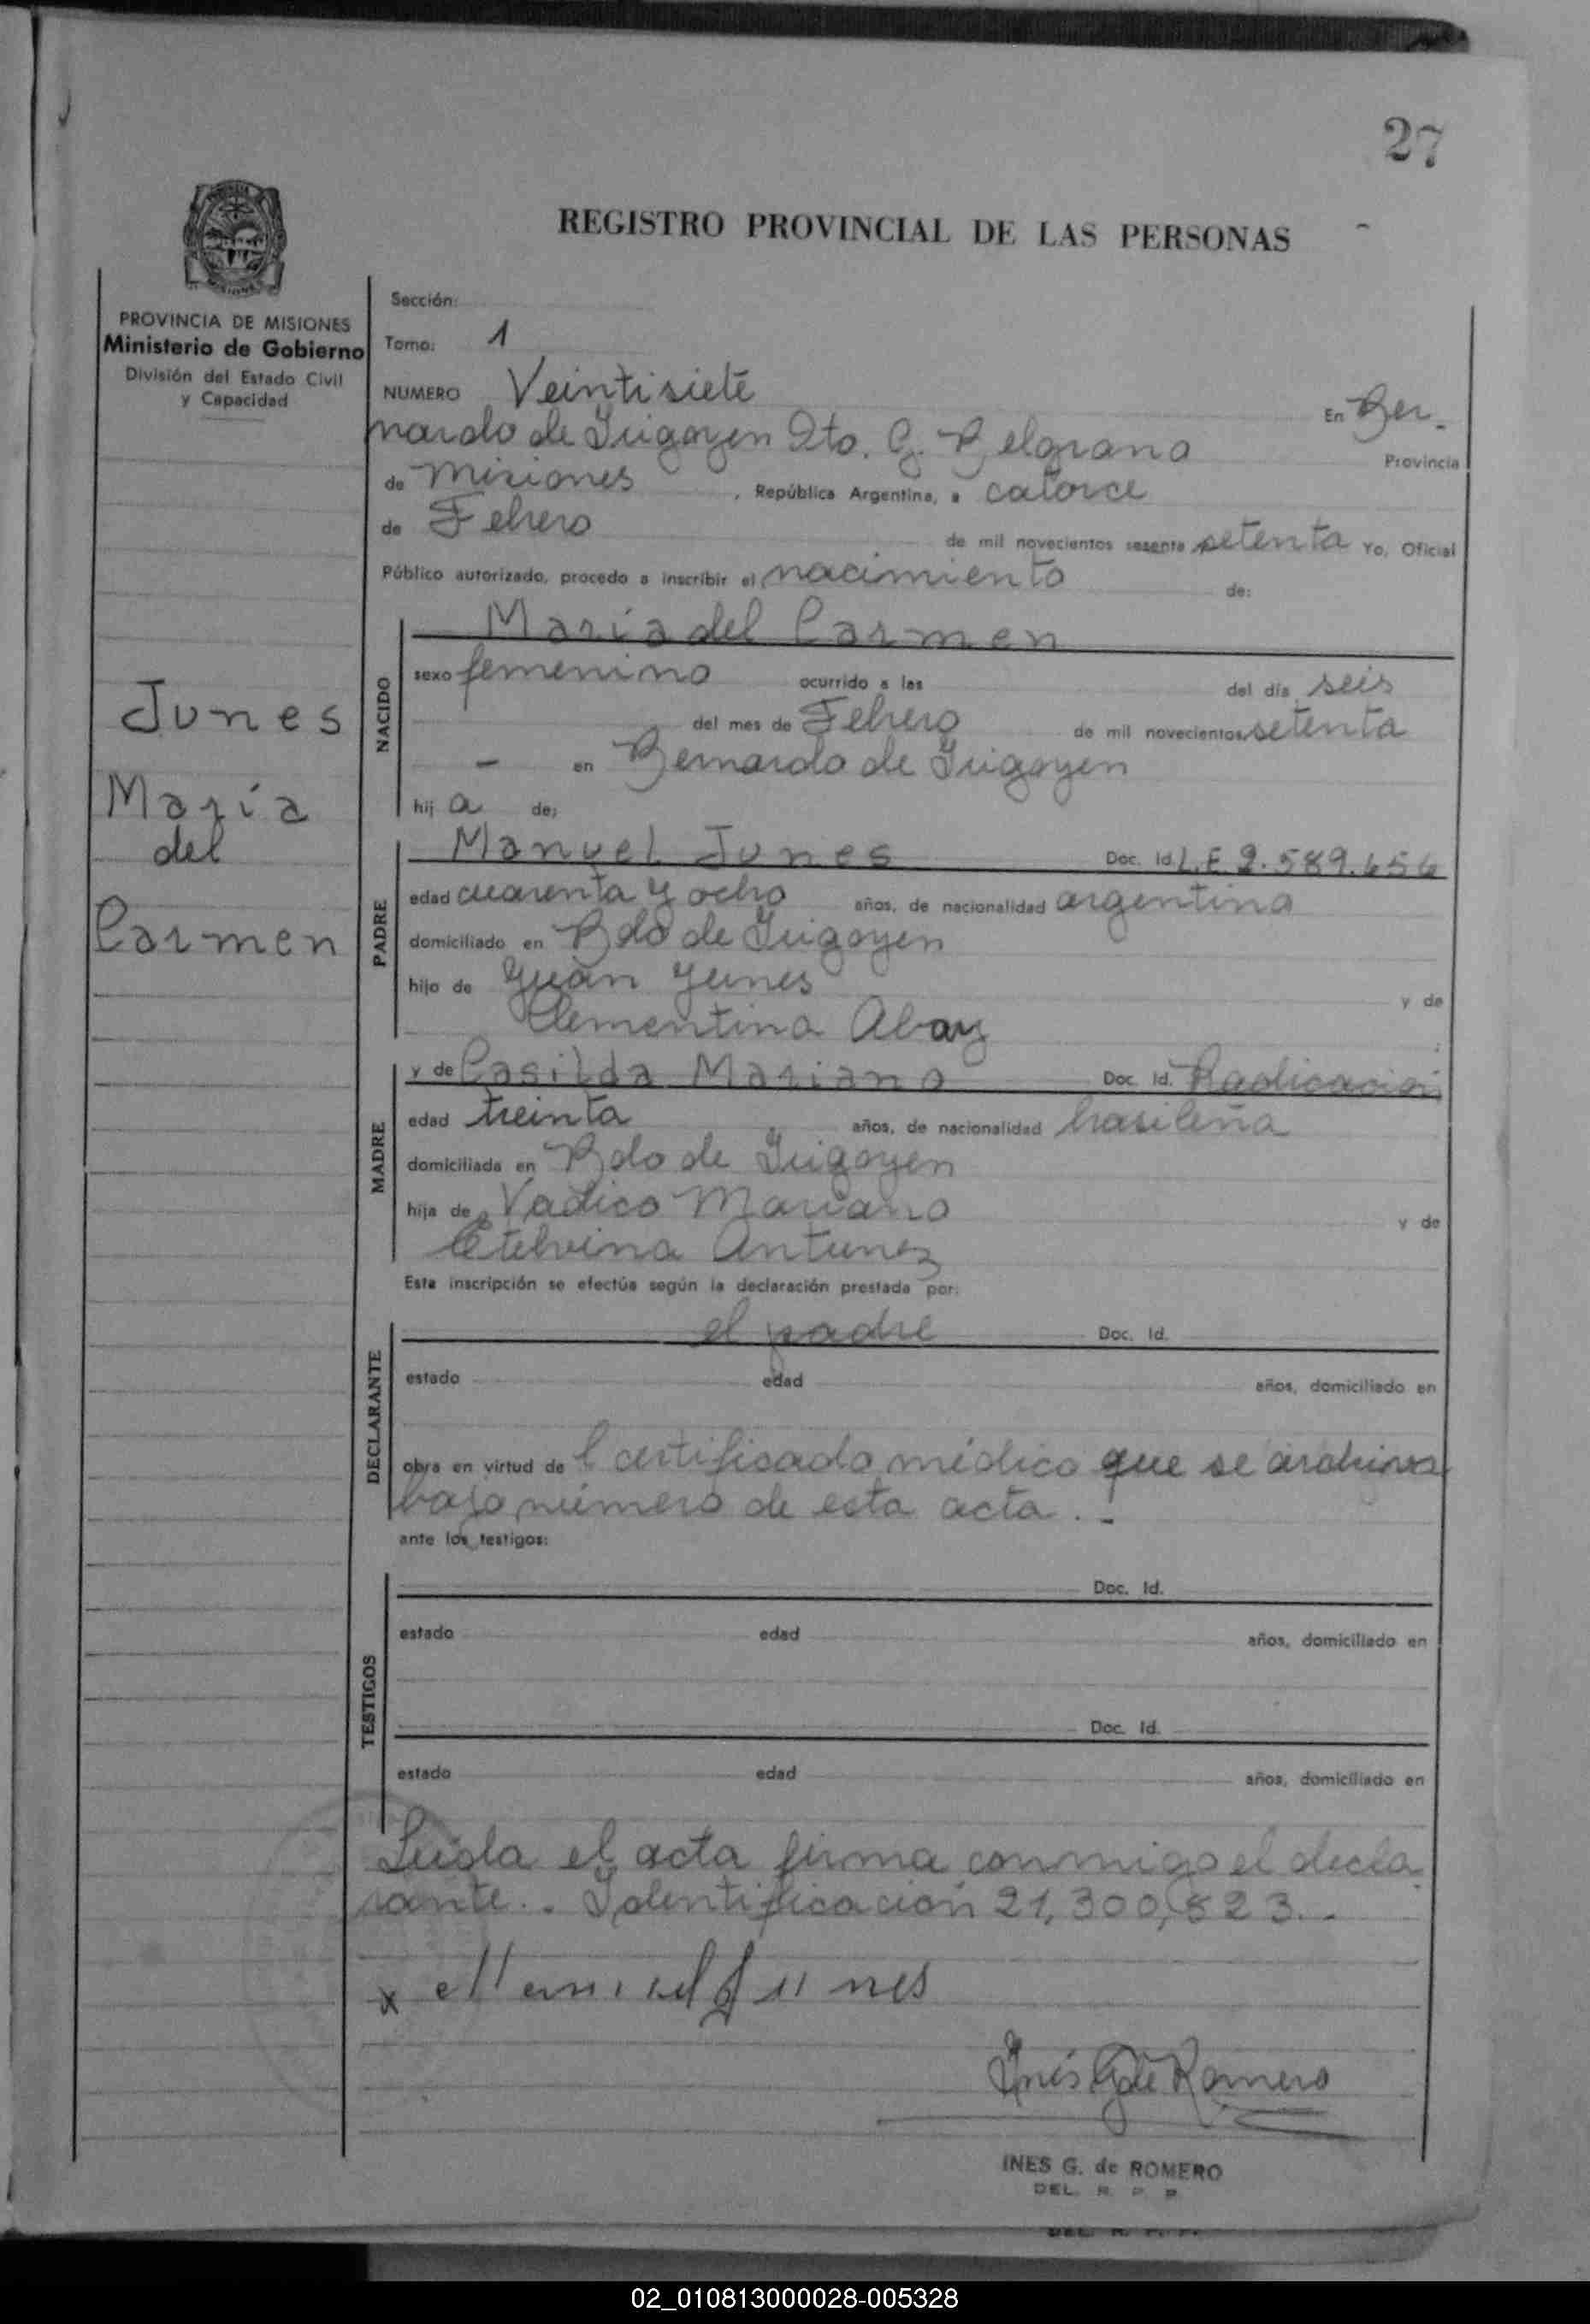 27
REGISTRO PROVINCIAL DE LAS PERSONAS
PROVINCIA DE MISIONES
Ministerio de Gobierno
División del Estado Civil
y Capacidad
Junes
María
del
Carmen
Sección:
Tomo: 1
NUMERO Veintisiete En Ber-
nardo de Irigoyen Dto. G. Belgrano Provincia
de Misiones, República Argentina, a catorce
de Febrero de mil novecientos sesenta setenta Yo, Oficial
Público autorizado, procedo a inscribir el nacimiento de:
NACIDO
María del Carmen
sexo femenino ocurrido a las del día seis
del mes de Febrero de mil novecientos setenta
- en Bernardo de Irigoyen
hij a de:
PADRE
Manuel Junes Doc. Id. L.E 2.589.656
edad cuarenta y ocho años, de nacionalidad argentina
domiciliado en Bdo de Irigoyen
hijo de Juan Junes y de
Clementina Abay
MADRE
y de Casilda Mariano Doc. Id. Radicación
edad treinta años, de nacionalidad brasileña
domiciliada en Bdo de Irigoyen
hija de Vadico Mariano y de
Etelvina Antunez
Esta inscripción se efectúa según la declaración prestada por:
DECLARANTE
el padre Doc. Id.
estado edad años, domiciliado en
obra en virtud de l certificado médico que se archiva
bajo número de esta acta. -
ante los testigos:
TESTIGOS
Doc. Id.
estado edad años, domiciliado en
Doc. Id.
estado edad años, domiciliado en
Leída el acta firma conmigo el decla
rante.. Identificación 21,300,823..
x Manuel Junes
Inés G de Romero
INES G. de ROMERO
DEL. R. P. P.
DEL. R. P. P.
02_010813000028-005328